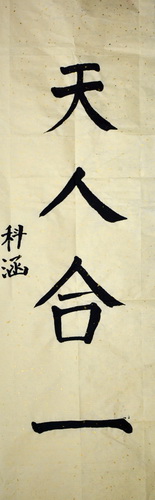 天人合一
科涵